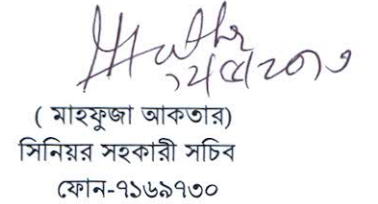 ১২/৫/২০১৩
( মাহফুজা আকতার)
সিনিয়র সহকারী সচিব
ফোন-৭১৬৯৭৩০